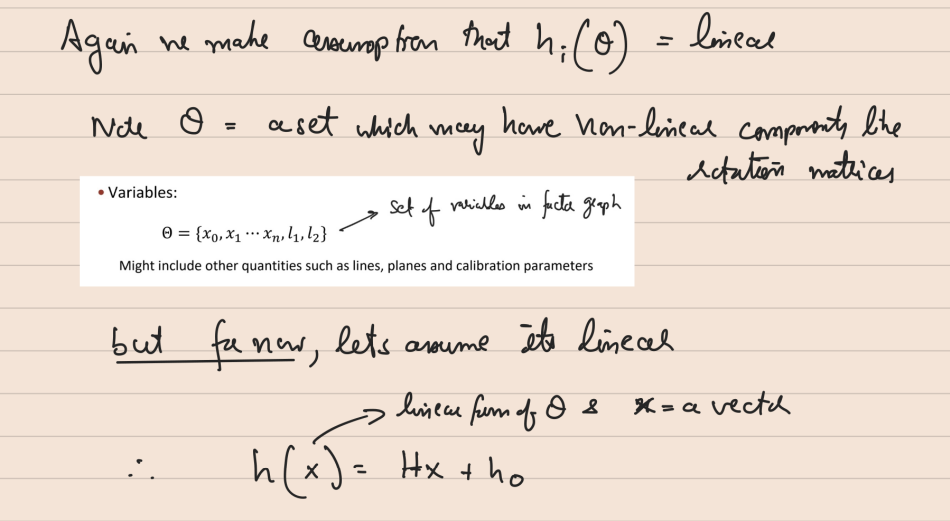 Again we make assumption that hᵢ(θ) = linear
Note θ = a set which may have non-linear components like
rotation matrices
• Variables:
→ set of variables in factor graph
Θ = {x₀, x₁ ⋯ xₙ, l₁, l₂}
Might include other quantities such as lines, planes and calibration parameters
but for now, lets assume its linear
→ linear form of θ & x = a vector
∴ h(x) = Hx + h₀